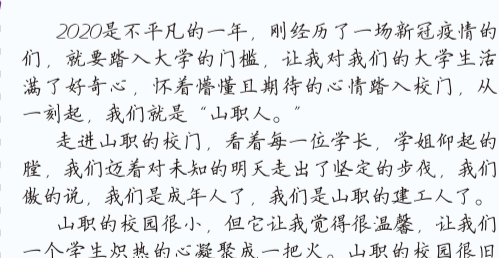 2020是不平凡的一年，刚经历了一场新冠疫情的
们，就要踏入大学的门槛，让我对我们的大学生活
满了好奇心，怀着懵懂且期待的心情踏入校门，从
一刻起，我们就是“山职人。”
走进山职的校门，看着每一位学长，学姐仰起的
膛，我们迈着对未知的明天走出了坚定的步伐，我们
傲的说，我们是成年人了，我们是山职的建工人了。
山职的校园很小，但它让我觉得很温馨，让我们
一个学生炽热的心凝聚成一把火。山职的校园很旧